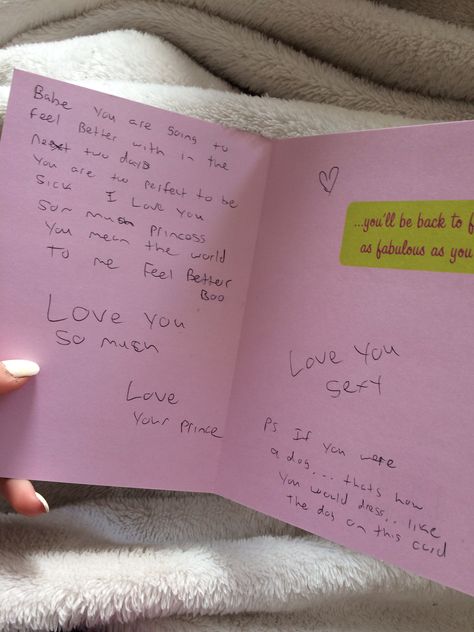 Babe you are going to
feel Better with in the
next two days
You are too perfect to be
Sick I Love you
Som mush Princess
You mean the world
To me Feel Better
Boo
Love you
So mush
Love
Your Prince
...you'll be back to f
as fabulous as you
Love you
sexy
Ps If you were
a dog... thats how
You would dress.. like
The dog on this card